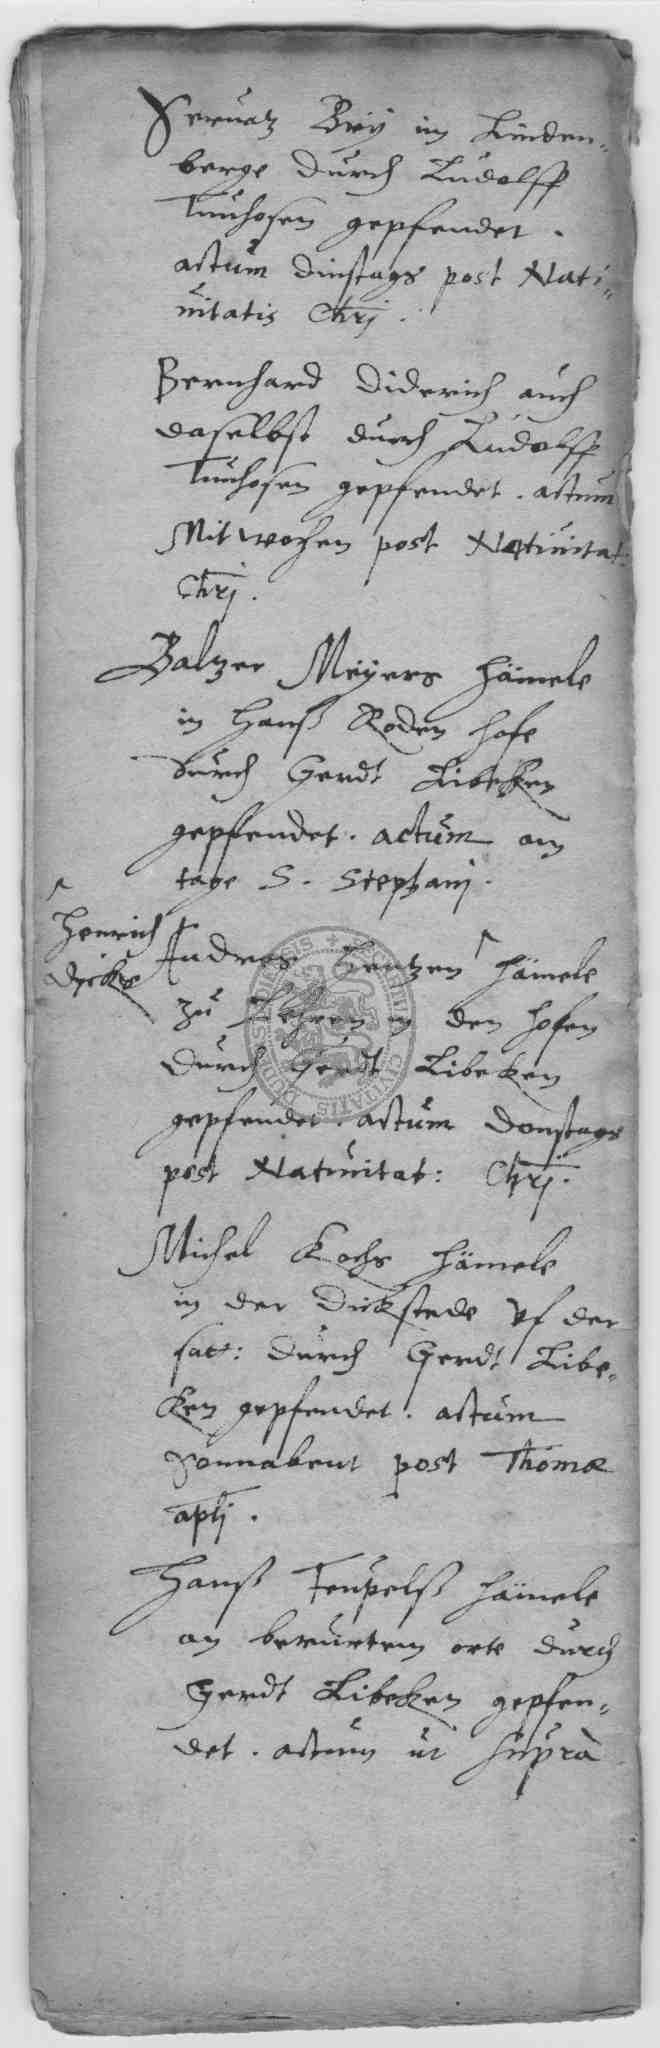 Seruatz Brÿ im Linden-
berge durch Ludolff
Tuuhosen gepfendet.
actum dinstags post Nati-
uitatis Chrj.
Bernhard Diderich auch
daselbst durch Ludolff
Tuuhosen gepfendet. actum
Mitwochen post Natiuitat:
Chrj.
Baltzer Meÿers hämele
in Hanß Roden hofe
durch Gerdt Libeken
gepfendet. actum am
tage S. Stephanj.
Henrich
Dicks
Andres Hentzen hämele
zu in den hofen
durch Gerdt Libeken
gepfendet. actum Donstags
post Natiuitat: Chrj.
Michel Kochs hämele
in der Dickstede vf der
sat: durch Gerdt Libe-
ken gepfendet. actum
Sonnabent post Thomæ
aplj.
Hanß Teupelß hämele
an berurtem orte durch
Gerdt Libeken gepfen-
det. actum ut supra